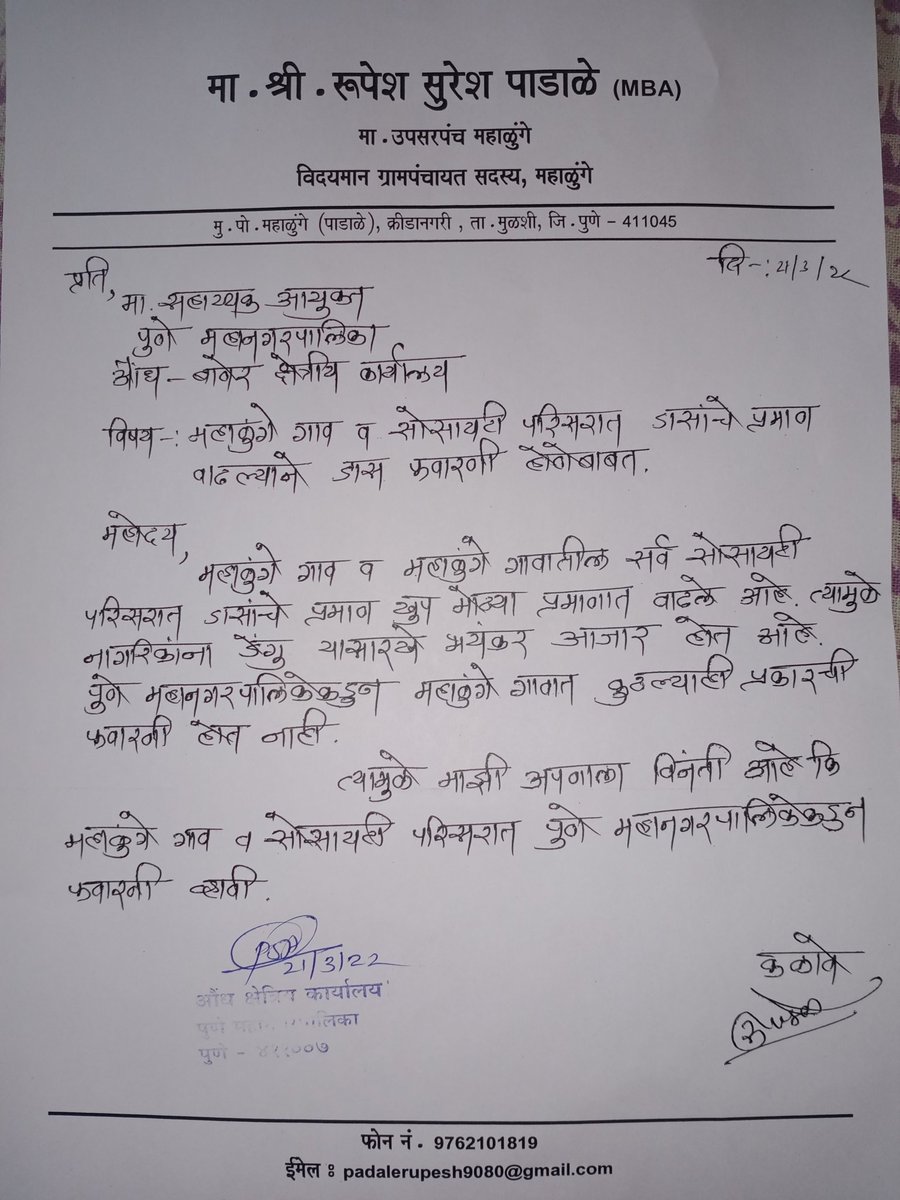 मा.श्री.रूपेश सुरेश पाडाळे (MBA)
मा.उपसरपंच महाळुंगे
विदयमान ग्रामपंचायत सदस्य, महाळुंगे
मु.पो.महाळुंगे (पाडाळे), क्रीडानगरी, ता.मुळशी, जि.पुणे - 411045
दि-: 21/3/22
प्रति,
मा. सहाय्यक आयुक्त
पुणे महानगरपालिका
औंध - बाणेर क्षेत्रीय कार्यालय
विषय-: महाळुंगे गाव व सोसायटी परिसरात डासांचे प्रमाण
वाढल्याने डास फवारणी होणेबाबत.
महोदय,
महाळुंगे गाव व महाळुंगे गावातील सर्व सोसायटी
परिसरात डासांचे प्रमाण खुप मोठ्या प्रमाणात वाढले आहे. त्यामुळे
नागरिकांना डेंगु यासारखे भयंकर आजार होत आहे.
पुणे महानगरपालिकेकडुन महाळुंगे गावात कुठल्याही प्रकारची
फवारनी होत नाही.
त्यामुळे माझी आपणाला विनंती आहे कि
महाळुंगे गाव व सोसायटी परिसरात पुणे महानगरपालिकेकडुन
फवारनी व्हावी.
21/3/22
औंध क्षेत्रिय कार्यालय
पुणे
पुणे - ४११००७
कळावे
फोन नं. 9762101819
ईमेल : padalerupesh9080@gmail.com